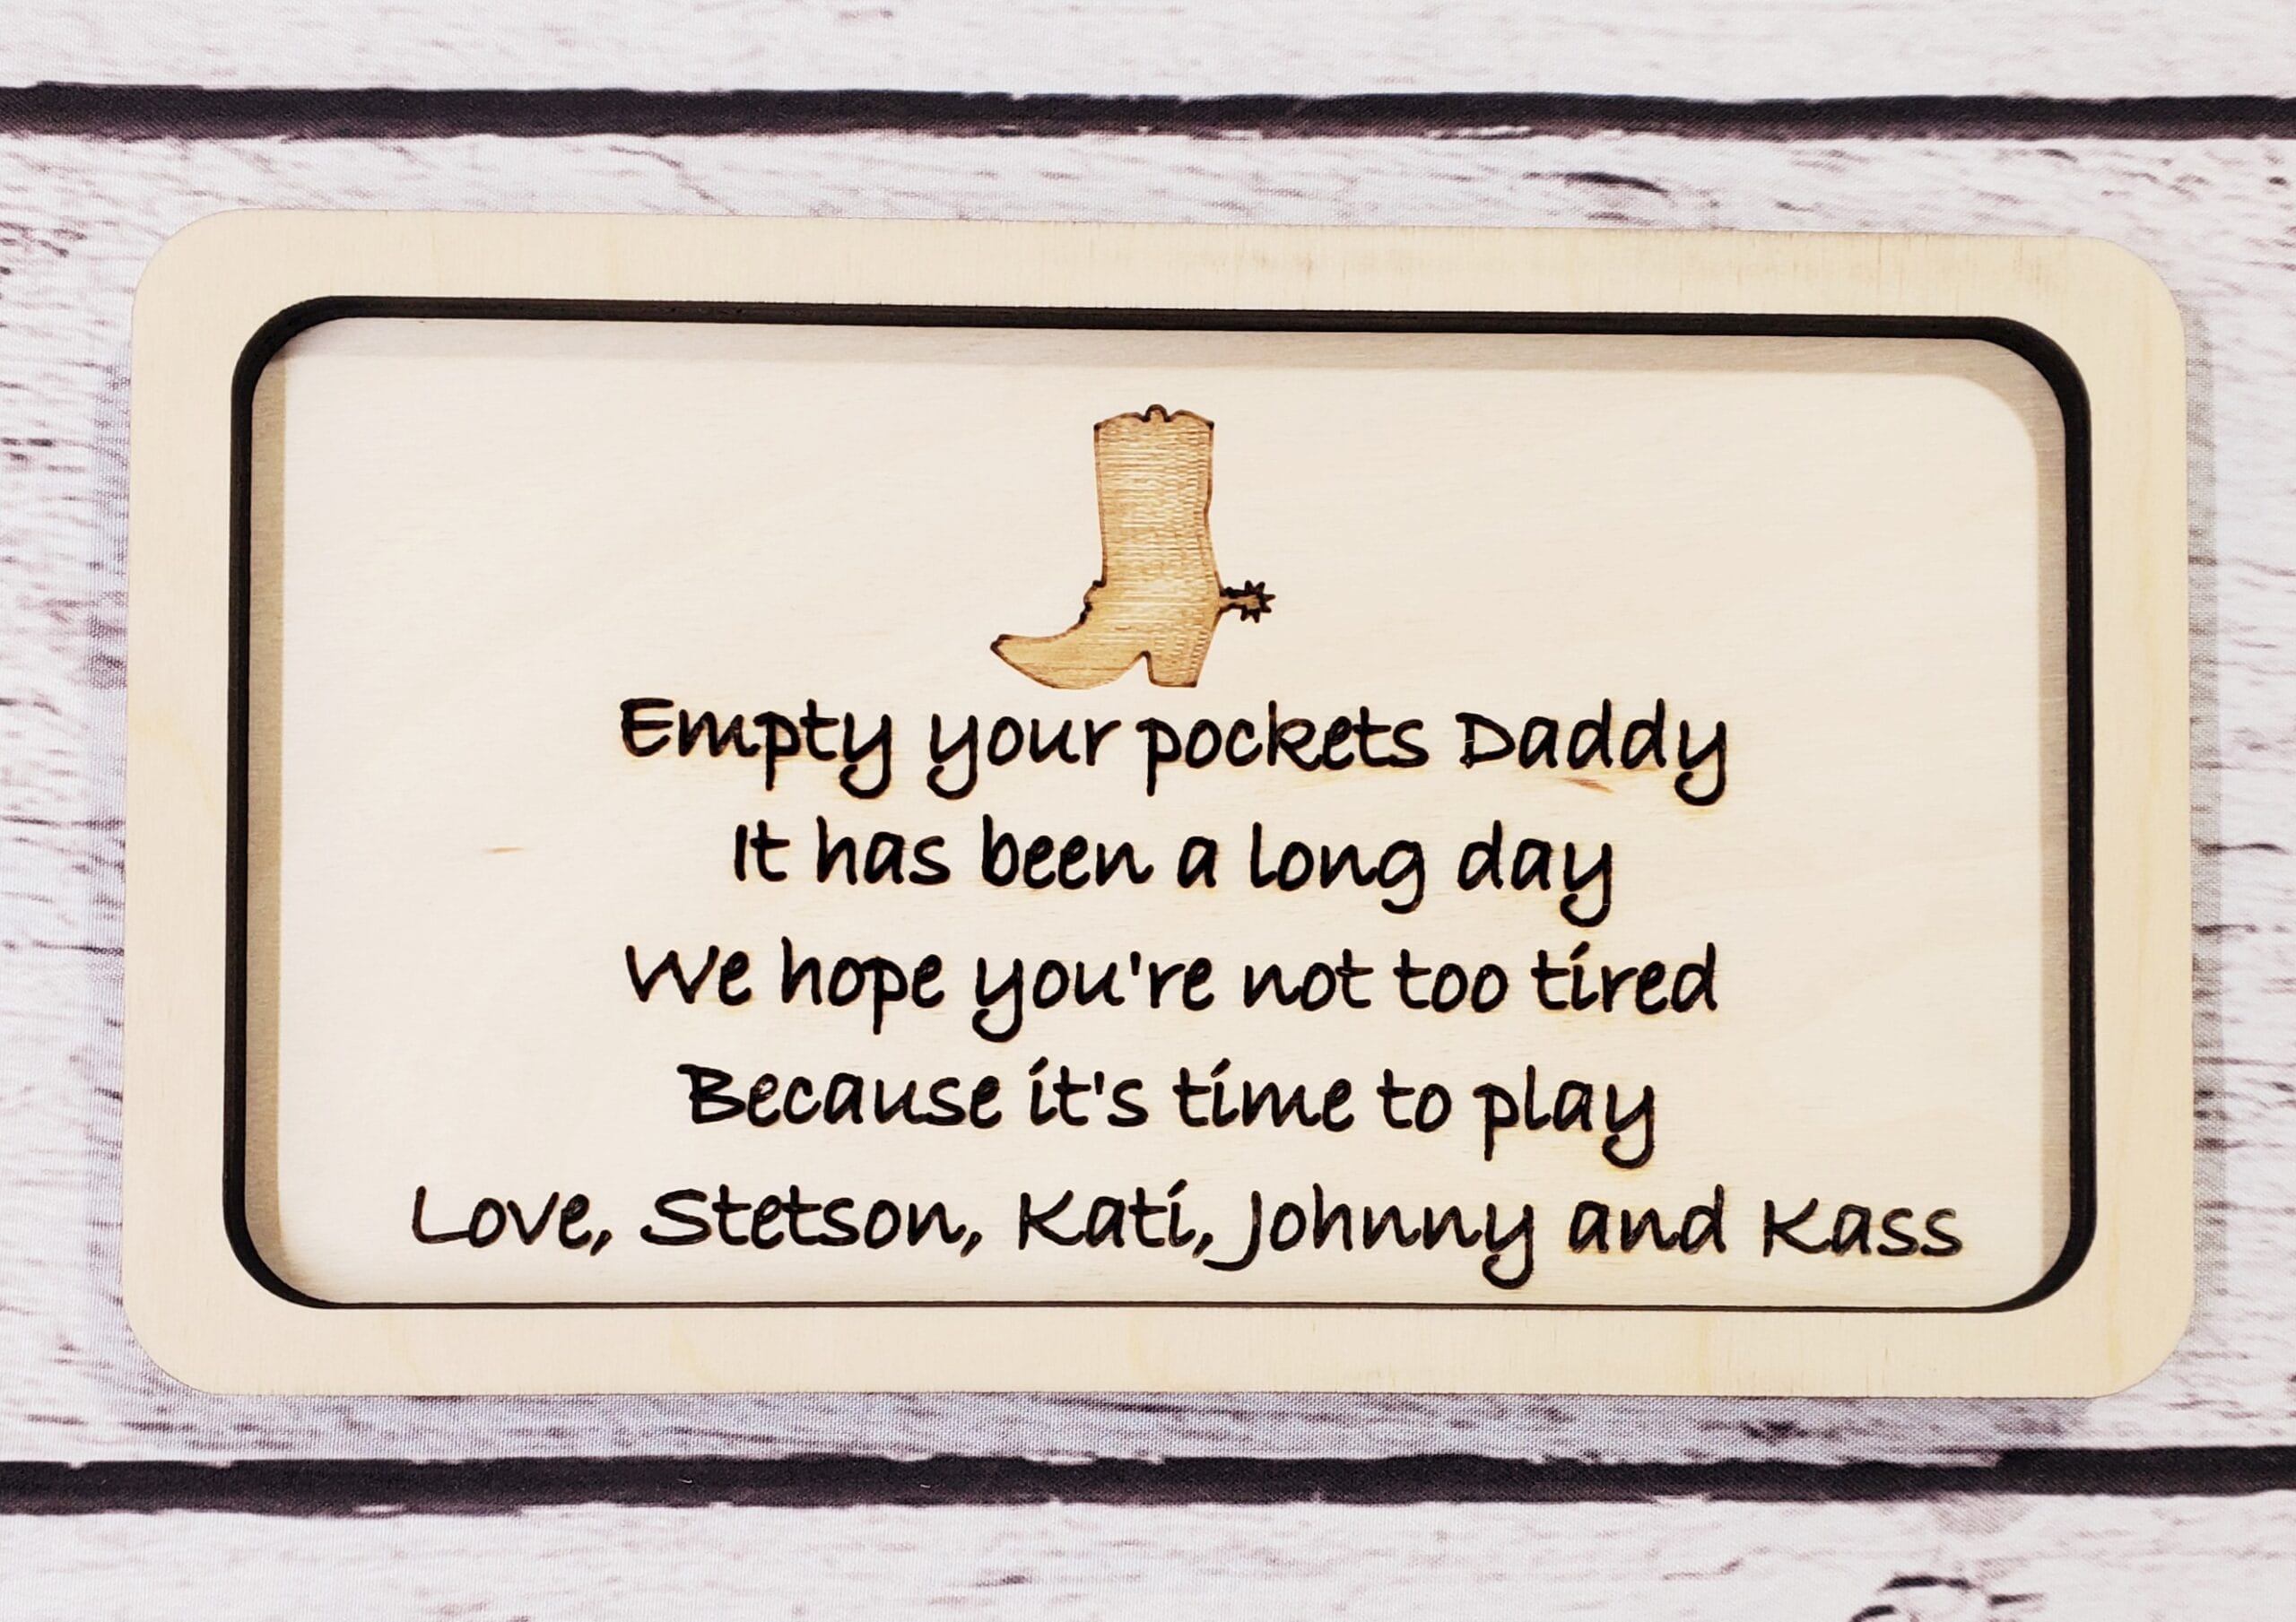 Empty your pockets Daddy
It has been a long day
We hope you're not too tired
Because it's time to play
Love, Stetson, Kati, Johnny and Kass